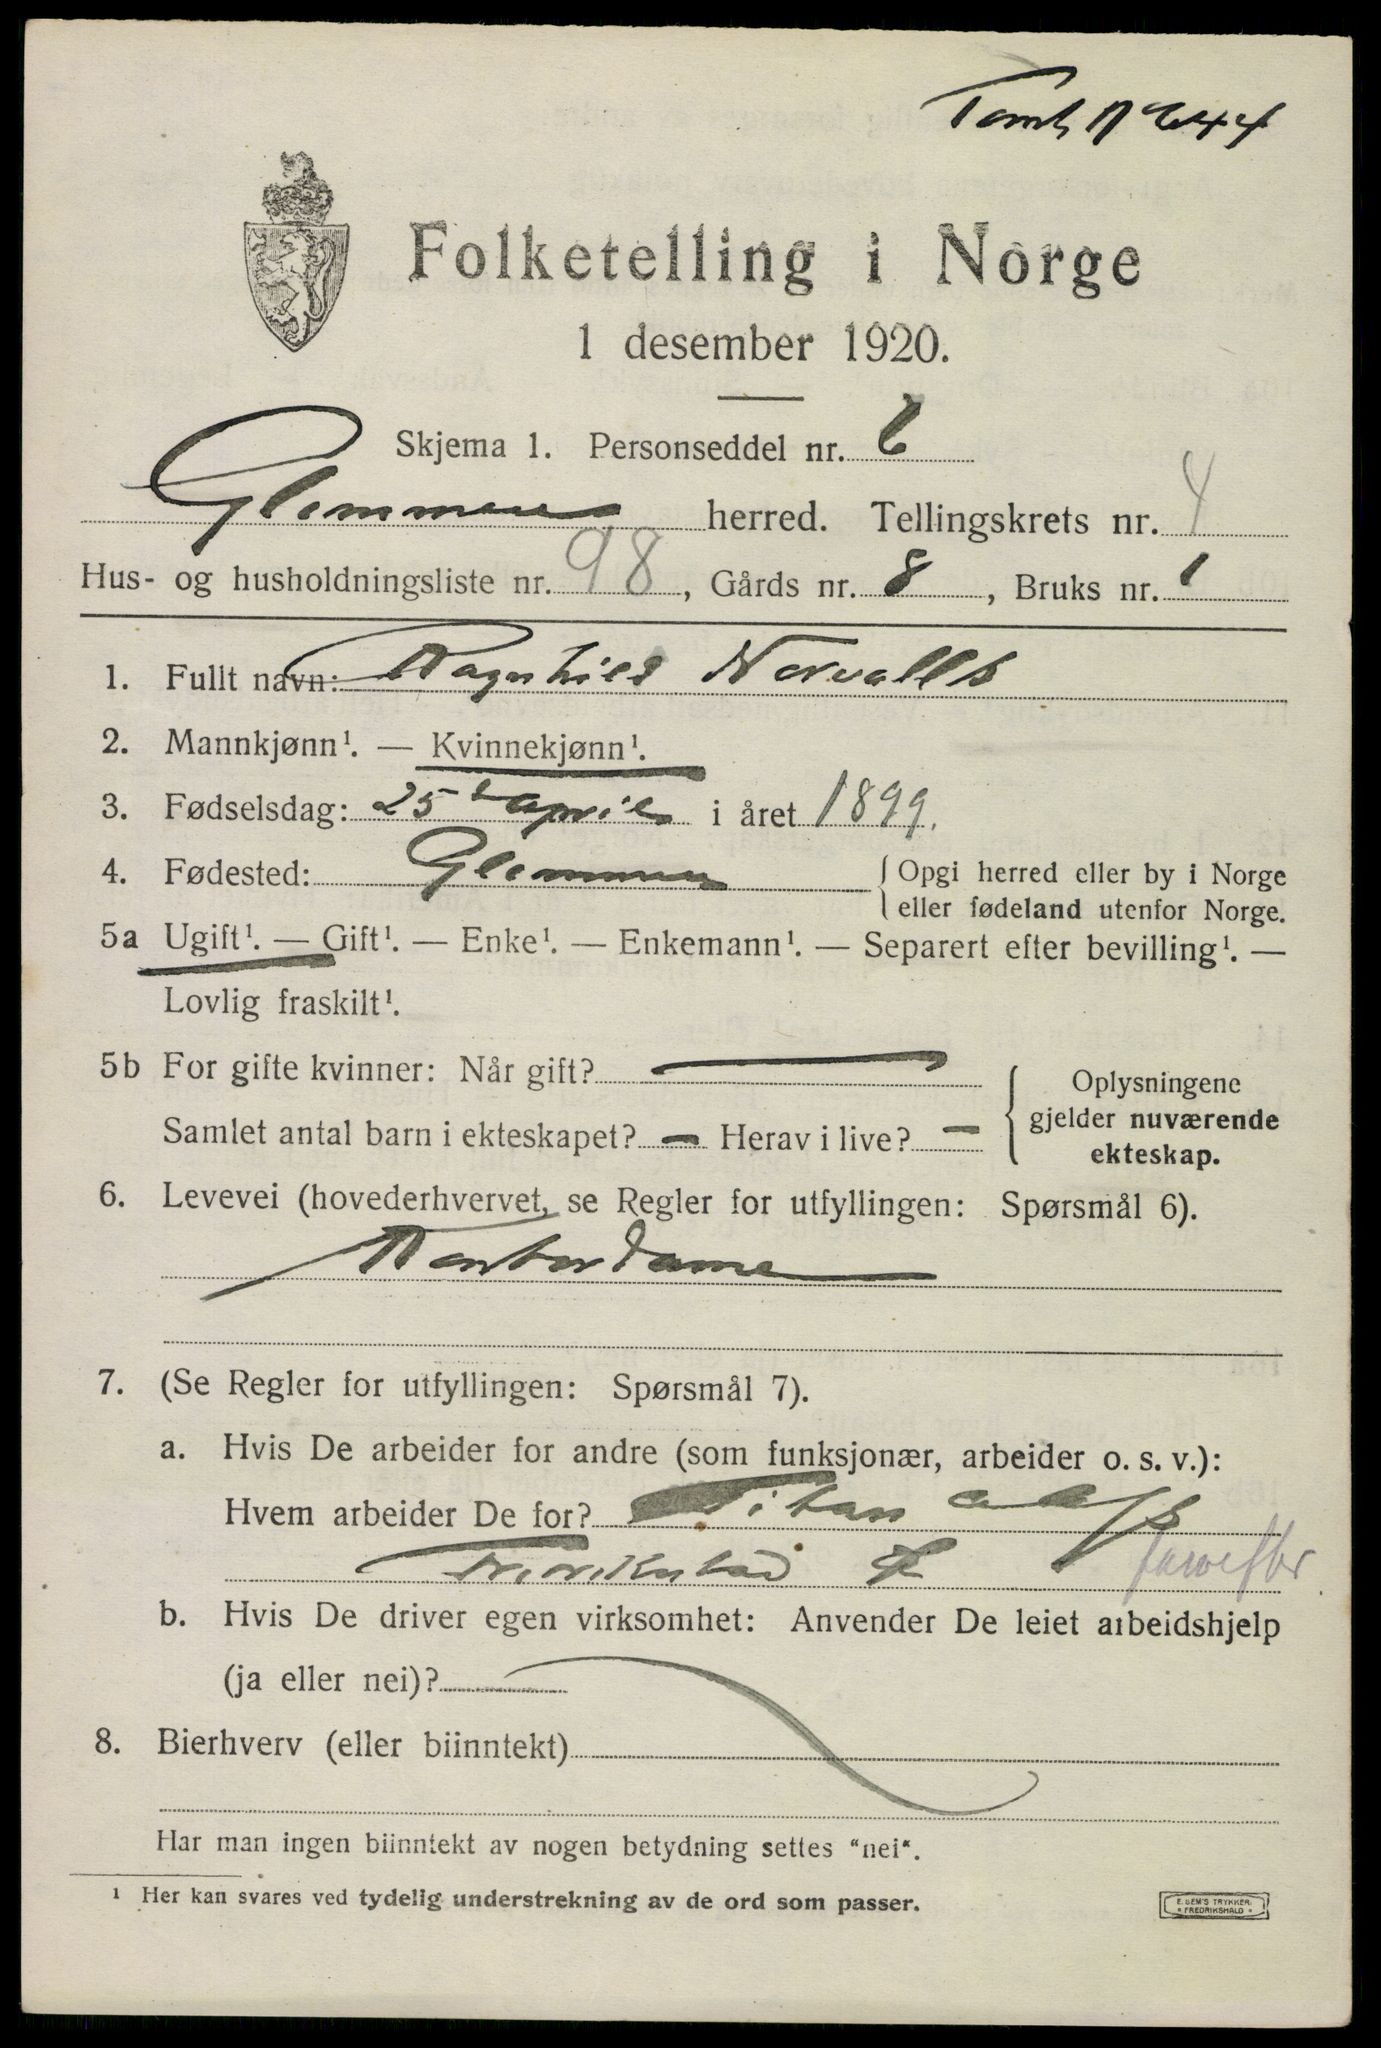 Tomt N 244
Folketelling i Norge
1 desember 1920.
Skjema 1. Personseddel nr. 6
Glemmen herred. Tellingskrets nr. 4
Hus- og husholdningsliste nr. 98, Gårds nr. 8, Bruks nr. 1
1. Fullt navn: Ragnhild Norvalls
2. Mannkjønn¹. — Kvinnekjønn¹.
3. Fødselsdag: 25 april i året 1899.
4. Fødested: Glemmen { Opgi herred eller by i Norge
eller fødeland utenfor Norge.
5a Ugift¹. — Gift¹. — Enke¹. — Enkemann¹. — Separert efter bevilling¹. —
Lovlig fraskilt¹.
5b For gifte kvinner: Når gift? —
Samlet antal barn i ekteskapet? — Herav i live? — { Oplysningene
gjelder nuværende
ekteskap.
6. Levevei (hovederhvervet, se Regler for utfyllingen: Spørsmål 6).
Kontordame
7. (Se Regler for utfyllingen: Spørsmål 7).
a. Hvis De arbeider for andre (som funksjonær, arbeider o. s. v.):
Hvem arbeider De for? Titan
Fredrikstad farvefbr
b. Hvis De driver egen virksomhet: Anvender De leiet arbeidshjelp
(ja eller nei)?
8. Bierhverv (eller biinntekt)
Har man ingen biinntekt av nogen betydning settes "nei".
¹ Her kan svares ved tydelig understrekning av de ord som passer.
E. SEM'S TRYKKER.
FREDRIKSHALD